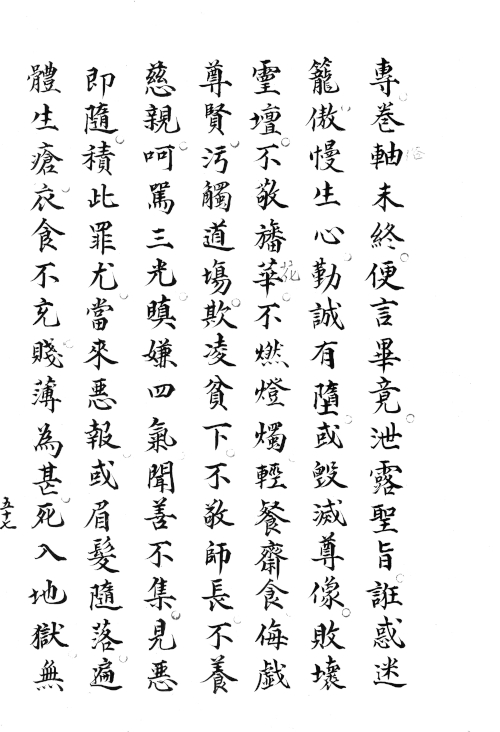 專卷軸未終便言畢竟泄露聖旨誑惑迷
籠傲慢生心勤誠有墮或毀滅尊像敗壞
靈壇不敬旛華不燃燈燭輕餐齋食侮戯
花
尊賢污觸道場欺凌貧下不敬師長不養
慈親呵罵三光瞋嫌四氣聞善不集見惡
即隨積此罪尤當來惡報或眉髮隨落遍
體生瘡衣食不充賤薄為甚死入地獄無
五十七